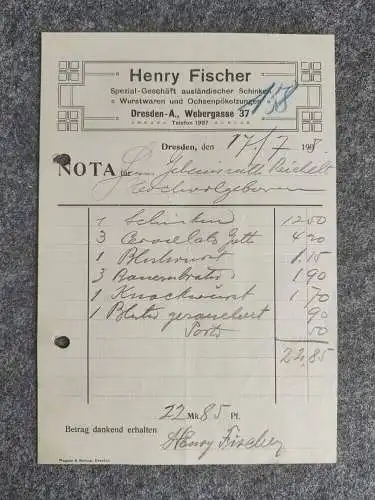 Henry Fischer
Spezial-Geschäft ausländischer Schinken
Wurstwaren und Ochsenpökelzungen
Dresden-A., Webergasse 37
Telefon 1987
158
Dresden, den 17/7 1908
NOTA für Herrn Geheimrath Reichelt
Hochwolgeboren
1 Schinken 12 50
3 Cervelats 4 20
1 Blutwurst 1.15
3 Bauernbratw 1 90
1 Knackwurst 1 70
1 Blutw geräuchert 90
Porto 50
22,85
22 Mk. 85 Pf.
Betrag dankend erhalten
Henry Fischer